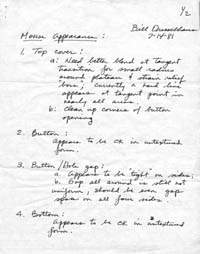 1/2
Bill Dresselhaus
7-14-81
Mouse Appearance:
1. Top cover:
a: Need better blend at tangent
transition for small radius
around plateau & strain relief
box; currently a hard line
appears at tangent point in
nearly all areas.
b: Clean up corners of button
opening
2. Button:
Appears to be OK in untextured
form.
3. Button/Hole gap:
a. Appears to be tight on sides;
b. Gap all around is still not
uniform, should be even gap
space on all four sides.
4. Bottom:
Appears to be OK in untextured
form.